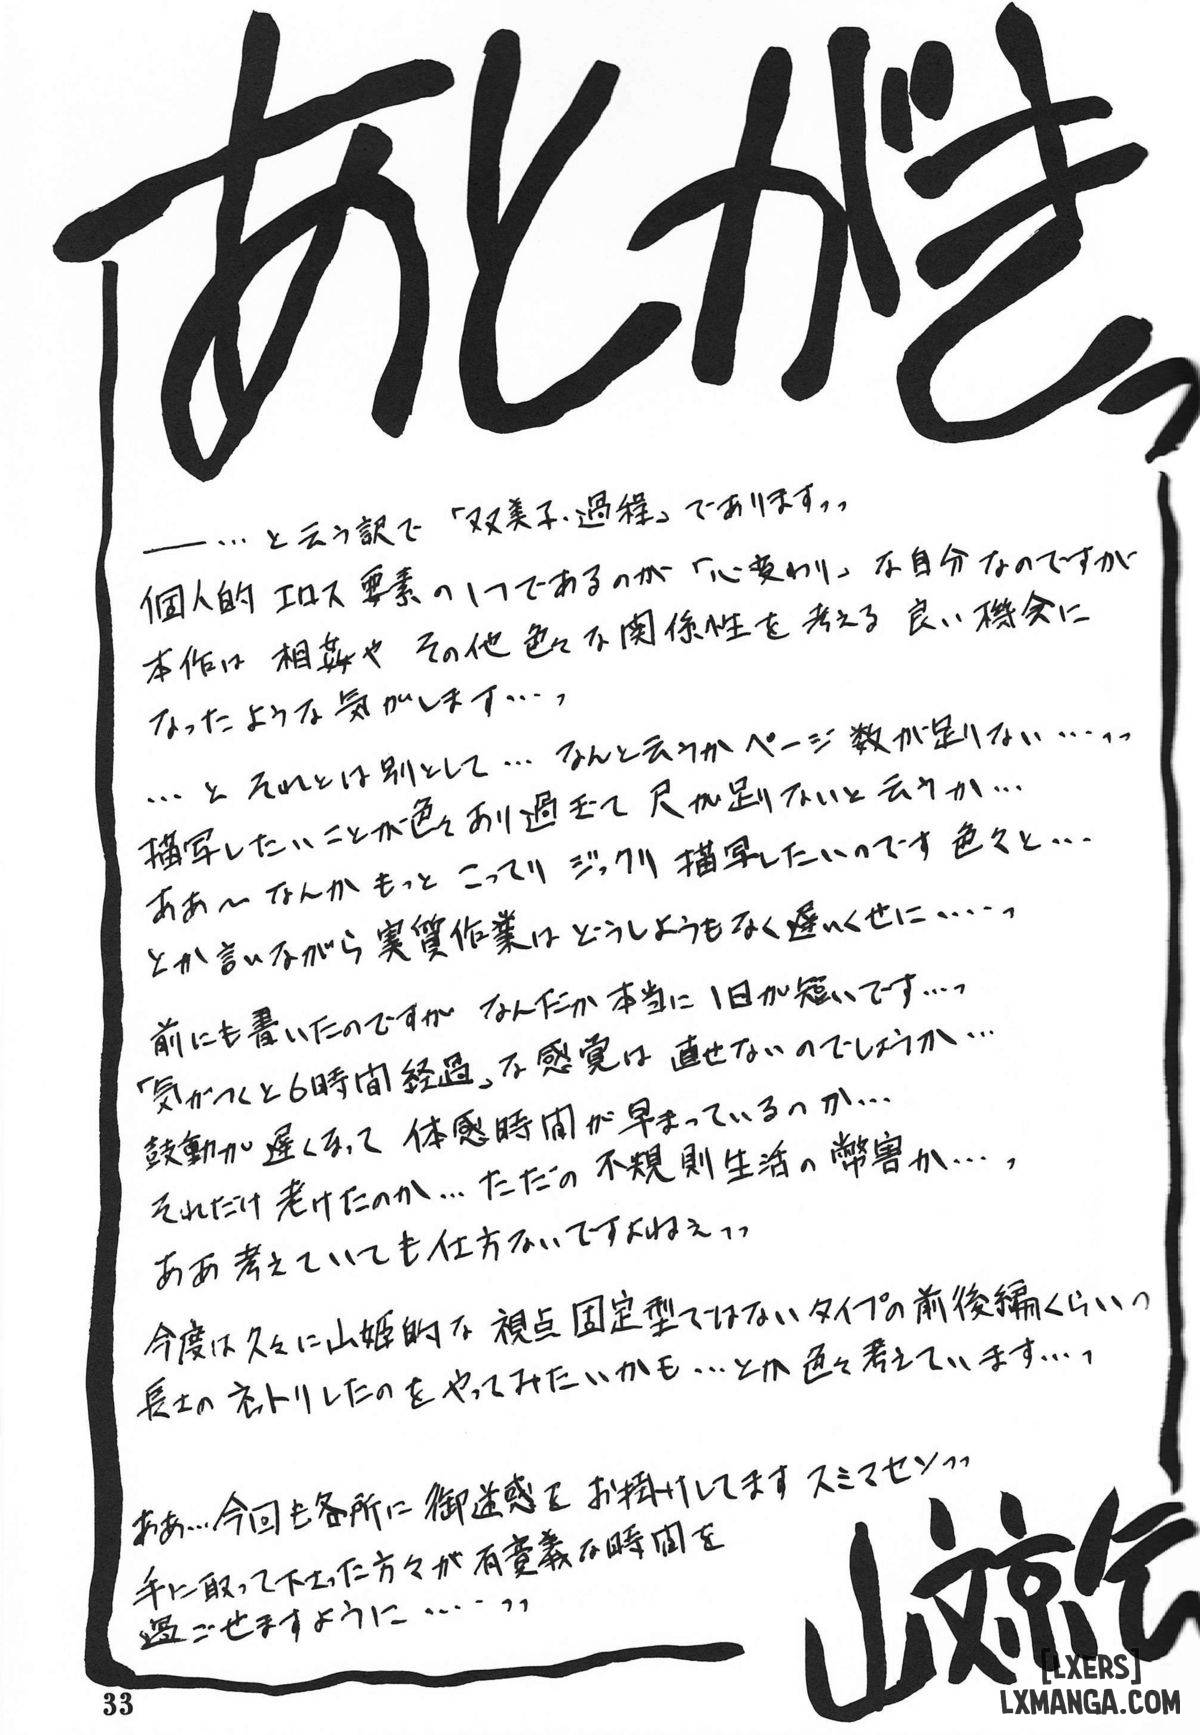 あとがきっ
──…と云う訳で「双美子・過程」でありますっっ
個人的エロス要素の1つであるのが「心変わり」な自分なのですが
本作は相姦やその他色々な関係性を考える良い機会に
なったような気がします…っ
…とそれとは別として…なんと云うかページ数が足りない…っっ
描写したいことが色々あり過ぎて尺が足りないと云うか…
ああ〜なんかもっとこってりジックリ描写したいのです色々と…
とか言いながら実質作業はどうしようもなく遅いくせに……っ
前にも書いたのですがなんだか本当に1日が短いです…っ
「気がつくと6時間経過」な感覚は直せないのでしょうか…
鼓動が遅くなって体感時間が早まっているのか…
それだけ老けたのか…ただの不規則生活の弊害か…っ
ああ考えていても仕方ないですよねぇっっ
今度は久々に山姫的な視点固定型ではないタイプの前後編くらいっ
長士のネトリしたのをやってみたいかも…とか色々考えています…っ
ああ…今回も各所に御迷惑をお掛けしてますスミマセンっっ
手に取って下さった方々が有意義な時間を
過ごせますように……っっ
山文京伝
33
[LXERS]
LXMANGA.COM